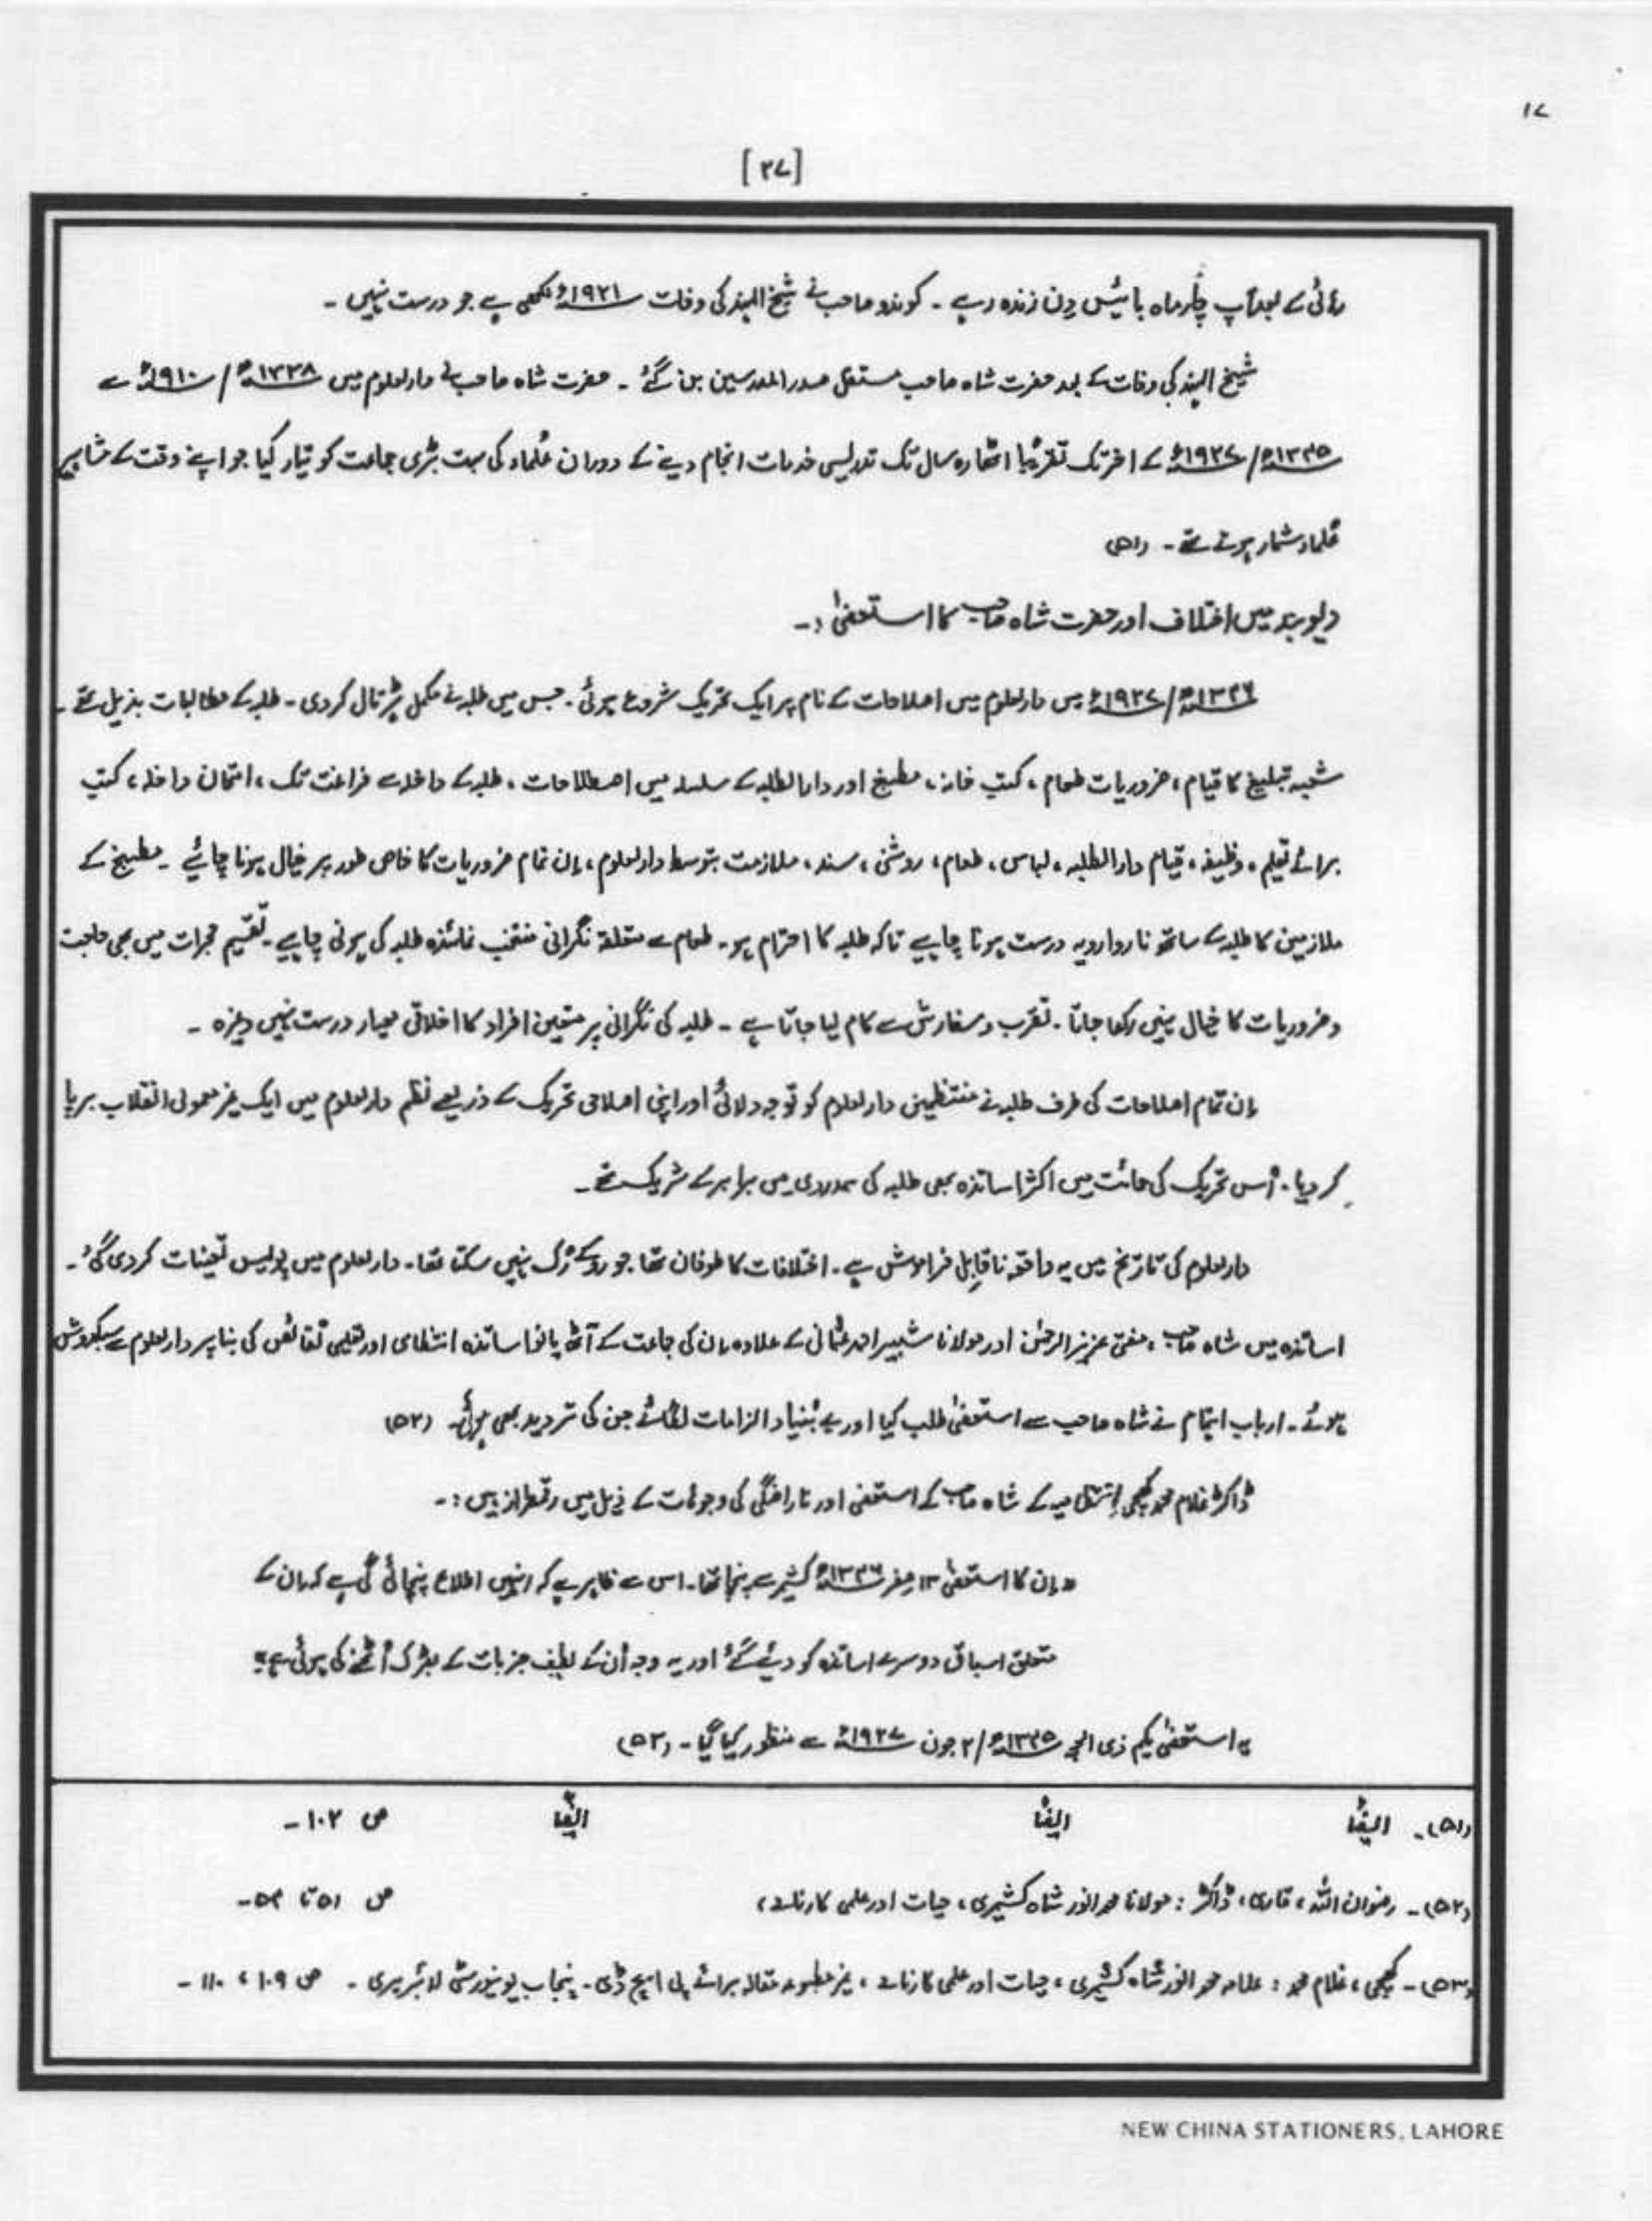 ۱۷
[۳۷]
رہائی کے بعد آپ چار ماہ بائیس دِن زندہ رہے ۔ کوندو صاحب نے شیخ الہند کی وفات ۱۹۲۱ء لکھی ہے جو درست نہیں ۔
شیخ الہند کی وفات کے بعد حضرت شاہ صاحب مستقل صدر المدرسین بن گئے ۔ حضرت شاہ صاحب نے دارالعلوم میں ۱۳۲۸ھ / ۱۹۱۰ء سے
۱۳۴۵ھ/ ۱۹۲۷ء کے اخر تک تقریباً اٹھارہ سال تک تدریسی خدمات انجام دینے کے دوران عُلماء کی بہت بڑی جماعت کو تیار کیا جو اپنے وقت کے مشاہیر
عُلماء شمار ہوتے تھے ۔ (۵۱)
دیوبند میں اختلاف اور حضرت شاہ صاحب کا استعفیٰ :۔
۱۳۴۶ھ/ ۱۹۲۷ء میں دارالعلوم میں اصلاحات کے نام پر ایک تحریک شروع ہوئی ۔ جس میں طلبہ نے مکمل ہڑتال کر دی ۔ طلبہ کے مطالبات بذیل تھے ۔
شعبہ تبلیغ کا قیام ، ضروریات طعام ، کتب خانہ ، مطبخ اور دارالطلبہ کے سلسلہ میں اصطلاحات ، طلبہ کے داخلہ سے فراغت تک ، امتحان داخلہ ، کتب
برائے تعلیم ، وظیفہ ، قیام دارالطلبہ ، لباس ، طعام ، روشنی ، سند ، ملازمت بتوسط دارالعلوم ، اِن تمام ضروریات کا خاص طور پر خیال ہونا چائیے ۔ مطبخ کے
ملازمین کا طلبہ کے ساتھ ناروا رویہ درست ہونا چاہیے تاکہ طلبہ کا احترام ہو ۔ طعام سے متعلقہ نگرانی منتخب نمائندہ طلبہ کی ہونی چاہیے ۔ تقسیم حجرات میں بھی حاجت
و ضروریات کا خیال نہیں رکھا جاتا ۔ تقرب و سفارش سے کام لیا جاتا ہے ۔ طلبہ کی نگرانی پر متعین افراد کا اخلاقی معیار درست نہیں وغیرہ ۔
اِن تمام اصلاحات کی طرف طلبہ نے منتظمین دارالعلوم کو توجہ دلائی اور اپنی اصلاحی تحریک کے ذریعے نظم دارالعلوم میں ایک غیر معمولی انقلاب برپا
کر دیا ۔ اُس تحریک کی حمائت میں اکثر اساتذہ بھی طلبہ کی ہمدردی میں برابر کے شریک تھے ۔
دارالعلوم کی تاریخ میں یہ واقعہ ناقابِل فراموش ہے ۔ اختلافات کا طوفان تھا جو روکے رُک نہیں سکتا تھا ۔ دارالعلوم میں پولیس تعینات کر دی گئی ۔
اساتذہ میں شاہ صاحب ، مفتی عزیز الرحمٰن اور مولانا شبیر احمد عثمانی کے علاوہ اِن کی جماعت کے آٹھ یا نو اساتذہ انتظامی اور تعلیمی نقائص کی بنا پر دارالعلوم سے سبکدوش
ہوئے ۔ ارباب اہتمام نے شاہ صاحب سے استعفیٰ طلب کیا اور بے بُنیاد الزامات لگائے جن کی تردید بھی ہوئی ۔ (۵۲)
ڈاکٹر غلام محمد کھچی اِنتظامیہ کے شاہ صاحب کے استعفیٰ اور ناراضگی کی وجوہات کے ذیل میں رقمطراز ہیں :۔
" اِن کا استعفیٰ ۱۳ صفر ۱۳۴۶ھ کشمیر سے پہنچا تھا ۔ اس سے ظاہر ہے کہ انہیں اطلاع پہنچائی گئی ہے کہ اِن کے
متعلق اسباق دوسرے اساتذہ کو دیئے گئے اور یہ وجہ اُن کے لطیف جزبات کے بھڑک اُٹھنے کی ہوئی ہے "
یہ استعفیٰ یکم ذی الحجہ ۱۳۴۵ھ / ۲ جون ۱۹۲۷ء سے منظور کیا گیا ۔ (۵۳)
(۵۱)۔ ایضاً ایضاً ایضاً ص ۱۰۲ ۔
(۵۲)۔ رضوان اللہ ، قاری ، ڈاکٹر : مولانا محمد انور شاہ کشمیری ، حیات اور علمی کارنامے ، ص ۵۱ تا ۵۴ ۔
(۵۳)۔ کھچی ، غلام محمد : علامہ محمد انور شاہ کشمیری ، حیات اور علمی کارنامے ، غیر مطبوعہ مقالہ برائے پی ایچ ڈی ۔ پنجاب یونیورسٹی لائبریری ۔ ص ۱۰۹ ، ۱۱۰ ۔
NEW CHINA STATIONERS, LAHORE